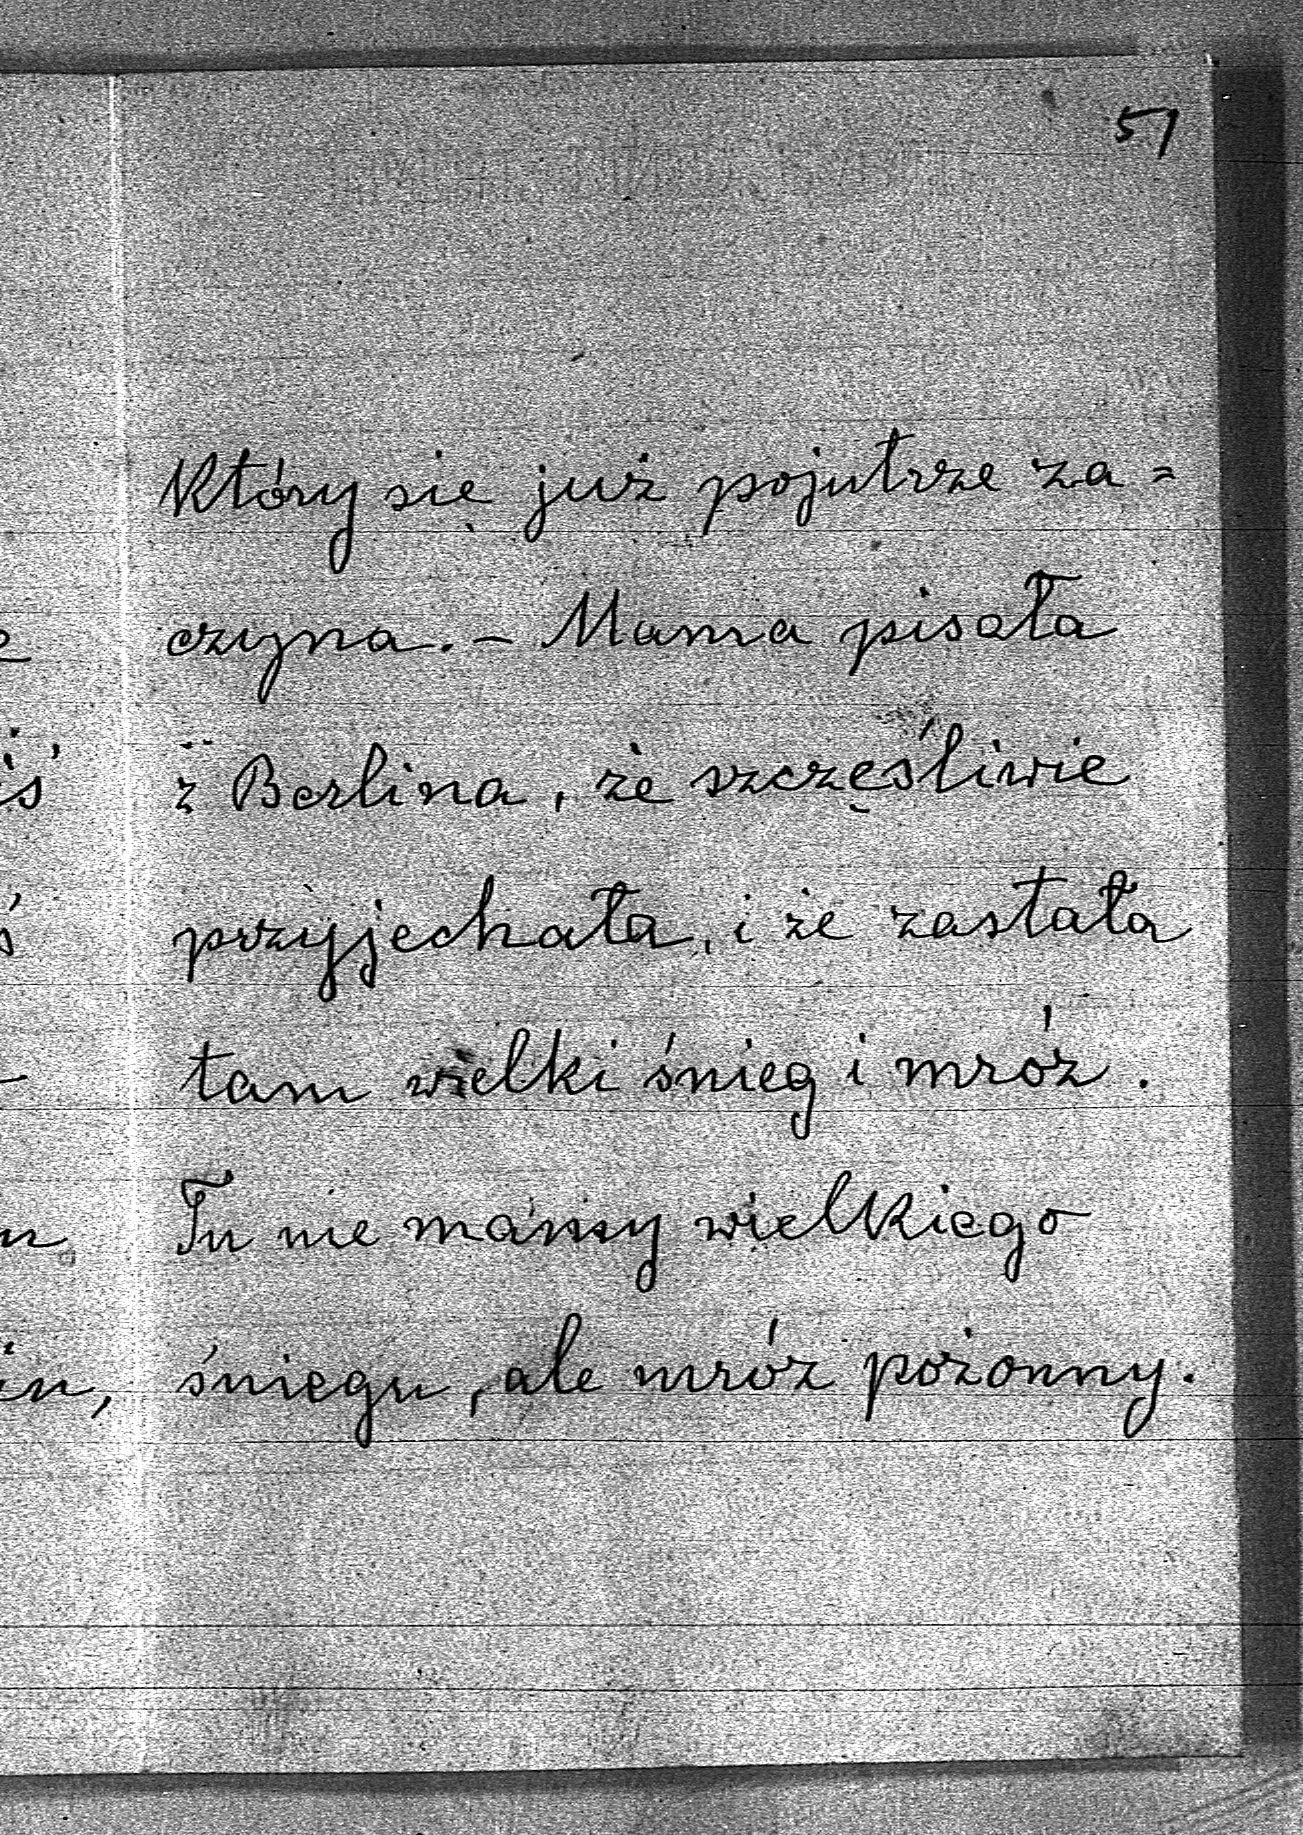 51
Który się już pojutrze za=
czyna. – Mama pisała
z Berlina, że szczęśliwie
przyjechała, i że zastała
tam wielki śnieg i mróz.
Tu nie mamy wielkiego
śniegu, ale mróz pożonny.